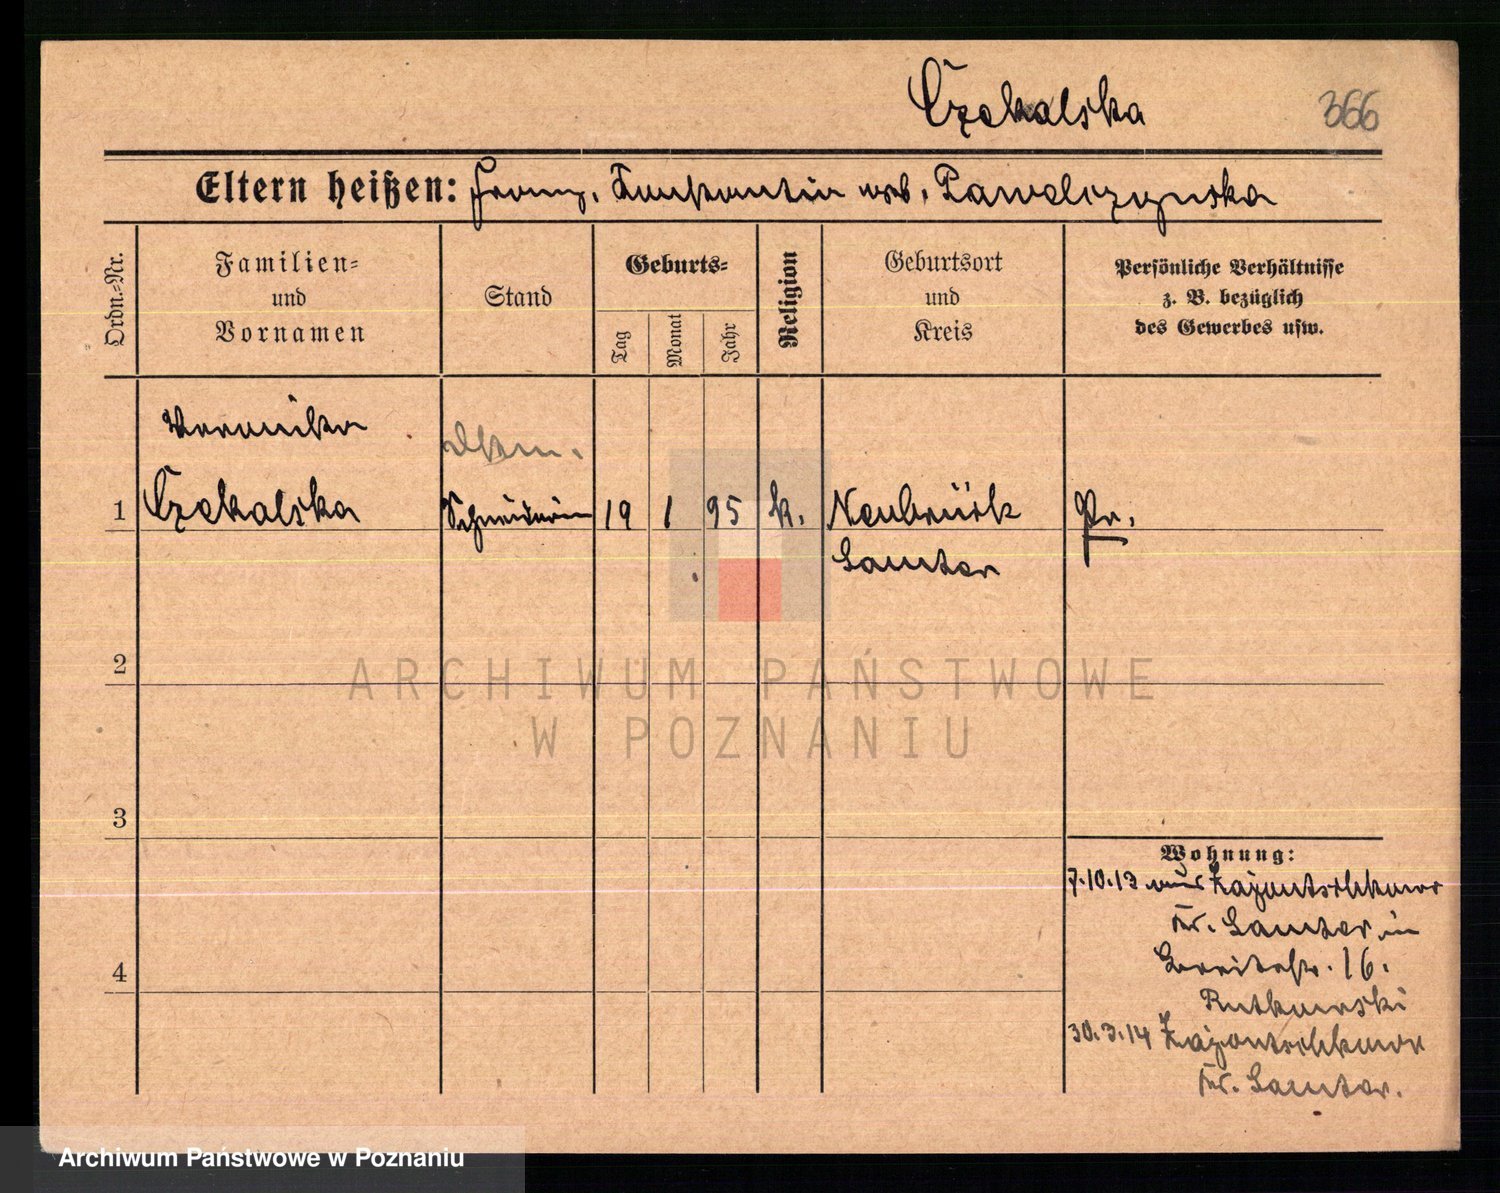 Czekalska 366
Eltern heißen: Franz, Konstantin geb. Pawelczynska
Ordn.-Nr.
Familien-
und
Vornamen
Stand
Geburts-
Tag
Monat
Jahr
Religion
Geburtsort
und
Kreis
Persönliche Verhältnisse
z. B. bezüglich
des Gewerbes usw.
Veronika
1 Czekalska Schneiderin 19 1 95 k. Neubrück Pr.
Samter
2
3
4
Wohnung:
7.10.13 aus Zajontschkowo
Kr. Samter in
Breitestr. 16.
Rutkowski
30.3.14 Zajontschkowo
Kr. Samter.
ARCHIWUM PAŃSTWOWE
W POZNANIU
Archiwum Państwowe w Poznaniu